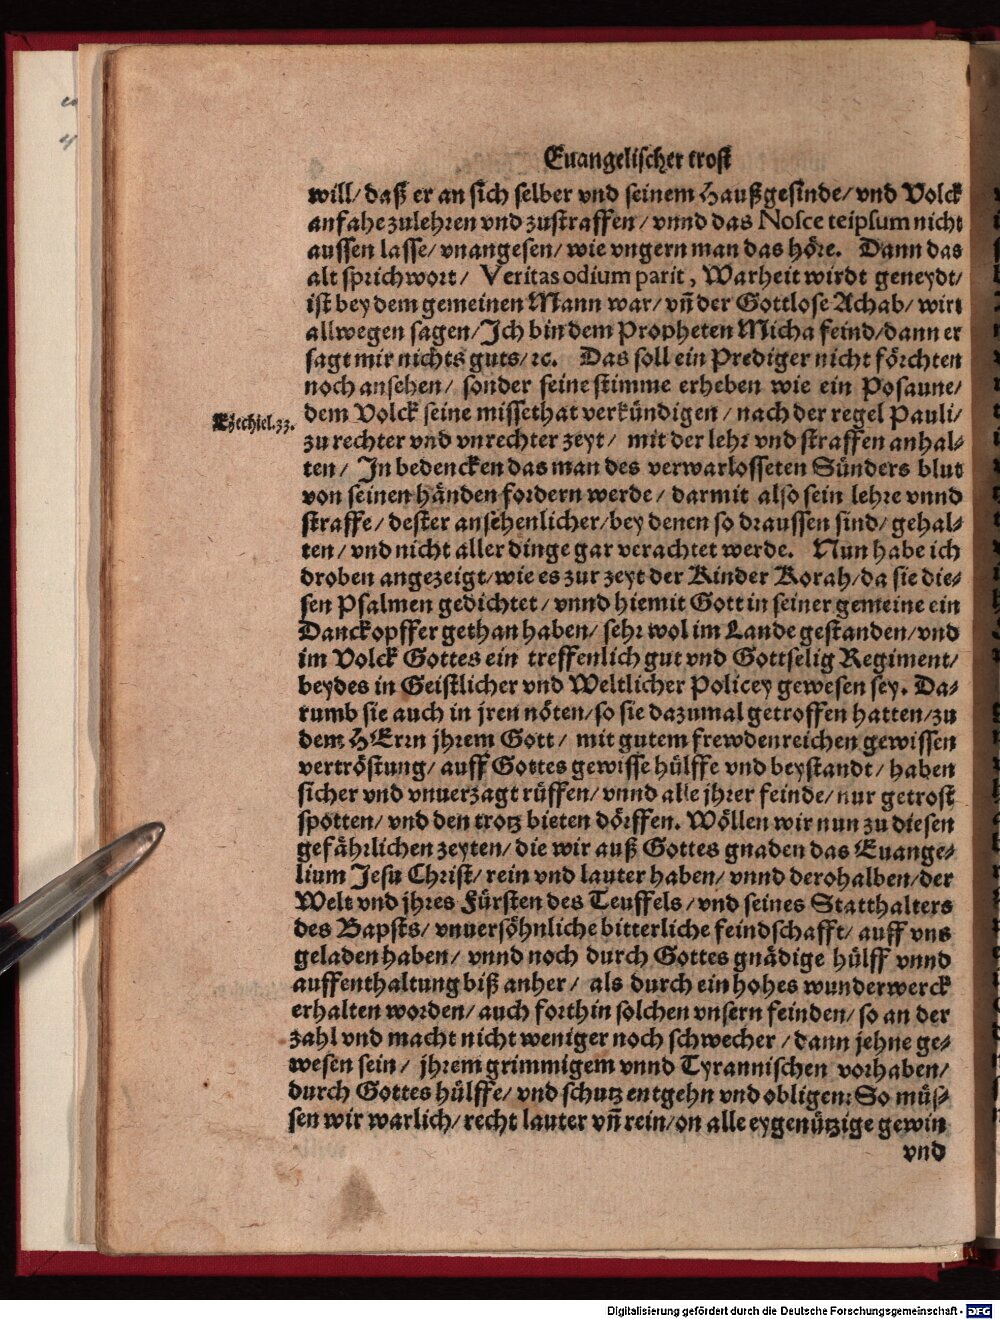 Euangelischer trost
will/ daß er an sich selber vnd seinem Haußgesinde/ vnd Volck
anfahe zulehren vnd zustraffen/ vnnd das Nosce teipsum nicht
aussen lasse/ vnangesen/ wie vngern man das höre. Dann das
alt sprichwort/ Veritas odium parit, Warheit wirdt geneydt/
ist bey dem gemeinen Mann war/ vñ der Gottlose Achab/ wirt
allwegen sagen/ Ich bin dem Propheten Micha feind/ dann er
sagt mir nichts guts/ ꝛc. Das soll ein Prediger nicht förchten
noch ansehen/ sonder seine stimme erheben wie ein Posaune/
dem Volck seine missethat verkündigen/ nach der regel Pauli/
Ezechiel.33.
zu rechter vnd vnrechter zeyt/ mit der lehr vnd straffen anhal-
ten/ In bedencken das man des verwarlosseten Sünders blut
von seinen händen fordern werde/ darmit also sein lehre vnnd
straffe/ dester ansehenlicher/ bey denen so draussen sind/ gehal-
ten/ vnd nicht aller dinge gar verachtet werde. Nun habe ich
droben angezeigt/ wie es zur zeyt der Kinder Korah/ da sie die-
sen Psalmen gedichtet/ vnnd hiemit Gott in seiner gemeine ein
Danckopffer gethan haben/ sehr wol im Lande gestanden/ vnd
im Volck Gottes ein treffenlich gut vnd Gottselig Regiment/
beydes in Geistlicher vnd Weltlicher Policey gewesen sey. Da-
rumb sie auch in jren nöten/ so sie dazumal getroffen hatten/ zu
dem HErrn jhrem Gott/ mit gutem frewdenreichen gewissen
vertröstung/ auff Gottes gewisse hülffe vnd beystandt/ haben
sicher vnd vnuerzagt rüffen/ vnnd alle jhrer feinde/ nur getrost
spotten/ vnd den trotz bieten dörffen. Wöllen wir nun zu diesen
gefährlichen zeyten/ die wir auß Gottes gnaden das Euange-
lium Jesu Christ/ rein vnd lauter haben/ vnnd derohalben/ der
Welt vnd jhres Fürsten des Teuffels/ vnd seines Statthalters
des Bapsts/ vnuersöhnliche bitterliche feindschafft/ auff vns
geladen haben/ vnnd noch durch Gottes gnädige hülff vnnd
auffenthaltung biß anher/ als durch ein hohes wunderwerck
erhalten worden/ auch forthin solchen vnsern feinden/ so an der
zahl vnd macht nicht weniger noch schwecher/ dann jehne ge-
wesen sein/ jhrem grimmigem vnnd Tyrannischen vorhaben/
durch Gottes hülffe/ vnd schutz entgehn vnd obligen: So müs-
sen wir warlich/ recht lauter vñ rein/ on alle eygenützige gewin
vnd
Digitalisierung gefördert durch die Deutsche Forschungsgemeinschaft - DFG